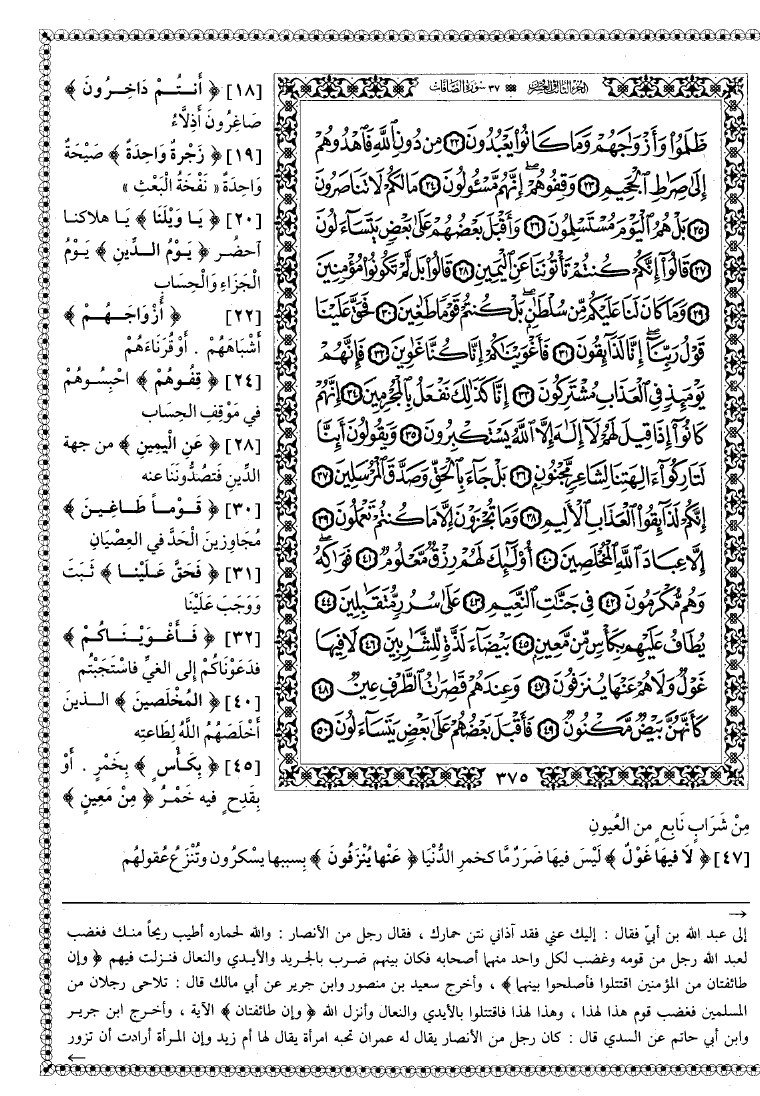 الجزء الثالث والعشرون ٣٧ سورة الصافات
ظَلَمُوا۟ وَأَزْوَٰجَهُمْ وَمَا كَانُوا۟ يَعْبُدُونَ ٢٢ مِن دُونِ ٱللَّهِ فَٱهْدُوهُمْ
إِلَىٰ صِرَٰطِ ٱلْجَحِيمِ ٢٣ وَقِفُوهُمْ ۖ إِنَّهُم مَّسْـُٔولُونَ ٢٤ مَا لَكُمْ لَا تَنَاصَرُونَ
٢٥ بَلْ هُمُ ٱلْيَوْمَ مُسْتَسْلِمُونَ ٢٦ وَأَقْبَلَ بَعْضُهُمْ عَلَىٰ بَعْضٍ يَتَسَآءَلُونَ
٢٧ قَالُوٓا۟ إِنَّكُمْ كُنتُمْ تَأْتُونَنَا عَنِ ٱلْيَمِينِ ٢٨ قَالُوا۟ بَل لَّمْ تَكُونُوا۟ مُؤْمِنِينَ
٢٩ وَمَا كَانَ لَنَا عَلَيْكُم مِّن سُلْطَٰنٍۭ ۖ بَلْ كُنتُمْ قَوْمًا طَٰغِينَ ٣٠ فَحَقَّ عَلَيْنَا
قَوْلُ رَبِّنَآ ۖ إِنَّا لَذَآئِقُونَ ٣١ فَأَغْوَيْنَٰكُمْ إِنَّا كُنَّا غَٰوِينَ ٣٢ فَإِنَّهُمْ
يَوْمَئِذٍ فِى ٱلْعَذَابِ مُشْتَرِكُونَ ٣٣ إِنَّا كَذَٰلِكَ نَفْعَلُ بِٱلْمُجْرِمِينَ ٣٤ إِنَّهُمْ
كَانُوٓا۟ إِذَا قِيلَ لَهُمْ لَآ إِلَٰهَ إِلَّا ٱللَّهُ يَسْتَكْبِرُونَ ٣٥ وَيَقُولُونَ أَئِنَّا
لَتَارِكُوٓا۟ ءَالِهَتِنَا لِشَاعِرٍ مَّجْنُونٍۭ ٣٦ بَلْ جَآءَ بِٱلْحَقِّ وَصَدَّقَ ٱلْمُرْسَلِينَ ٣٧
إِنَّكُمْ لَذَآئِقُوا۟ ٱلْعَذَابِ ٱلْأَلِيمِ ٣٨ وَمَا تُجْزَوْنَ إِلَّا مَا كُنتُمْ تَعْمَلُونَ ٣٩
إِلَّا عِبَادَ ٱللَّهِ ٱلْمُخْلَصِينَ ٤٠ أُو۟لَٰٓئِكَ لَهُمْ رِزْقٌ مَّعْلُومٌ ٤١ فَوَٰكِهُ ۖ
وَهُم مُّكْرَمُونَ ٤٢ فِى جَنَّٰتِ ٱلنَّعِيمِ ٤٣ عَلَىٰ سُرُرٍ مُّتَقَٰبِلِينَ ٤٤
يُطَافُ عَلَيْهِم بِكَأْسٍ مِّن مَّعِينٍۭ ٤٥ بَيْضَآءَ لَذَّةٍ لِّلشَّٰرِبِينَ ٤٦ لَا فِيهَا
غَوْلٌ وَلَا هُمْ عَنْهَا يُنزَفُونَ ٤٧ وَعِندَهُمْ قَٰصِرَٰتُ ٱلطَّرْفِ عِينٌ ٤٨
كَأَنَّهُنَّ بَيْضٌ مَّكْنُونٌ ٤٩ فَأَقْبَلَ بَعْضُهُمْ عَلَىٰ بَعْضٍ يَتَسَآءَلُونَ ٥٠
٣٧٥
[١٨] ﴿ أَنتُمْ دَاخِرُونَ ﴾
صَاغِرُونَ أَذِلَّاءُ
[١٩] ﴿ زَجْرَةٌ وَاحِدَةٌ ﴾ صَيْحَةٌ
وَاحِدَةٌ « نَفْخَةُ الْبَعْثِ »
[٢٠] ﴿ يَا وَيْلَنَا ﴾ يَا هلاكنا
آحضُر ﴿ يَوْمُ الدِّينِ ﴾ يَوْمُ
الْجَزَاءِ وَالْحِسَابِ
[٢٢] ﴿ أَزْوَاجَهُمْ ﴾
أَشْبَاهَهُمْ . أَوْ قُرَنَاءَهُمْ
[٢٤] ﴿ قِفُوهُمْ ﴾ احْبِسُوهُمْ
في مَوْقِفِ الحِسَاب
[٢٨] ﴿ عَنِ الْيَمِينِ ﴾ من جهة
الدِّينِ فَتَصُدُّونَنَا عنه
[٣٠] ﴿ قَوْماً طَاغِينَ ﴾
مُجَاوِزِينَ الْحَدَّ في العِصْيَانِ
[٣١] ﴿ فَحَقَّ عَلَيْنَا ﴾ ثَبَتَ
وَوَجَبَ عَلَيْنَا
[٣٢] ﴿ فَأَغْوَيْنَاكُمْ ﴾
فدَعَوْنَاكُمْ إلى الغيِّ فاسْتَجَبْتُم
[٤٠] ﴿ المُخْلَصينَ ﴾ الذينَ
أَخْلَصَهُمُ اللَّهُ لِطَاعتِه
[٤٥] ﴿ بِكَأْسٍ ﴾ بِخَمْرٍ . أَوْ
بِقَدِحٍ فيه خَمْرٌ ﴿ مِنْ مَعِينٍ ﴾
مِنْ شَرَابٍ نَابِعٍ من العُيونِ
[٤٧] ﴿ لَا فيهَا غَوْلٌ ﴾ لَيْسَ فيهَا ضَرَرٌ مَّا كخمرِ الدُّنْيَا ﴿ عَنْها يُنْزَفُونَ ﴾ بِسببها يسْكرُون وتُنْزَعُ عُقولهُم
إلى عبد الله بن أبيّ فقال : إليك عني فقد آذاني نتن حمارك ، فقال رجل من الأنصار : والله لحماره أطيب ريحاً منك فغضب
لعبد الله رجل من قومه وغضب لكل واحد منهما أصحابه فكان بينهم ضرب بالجريد والأيدي والنعال فنزلت فيهم ﴿ وإن
طائفتان من المؤمنين اقتتلوا فأصلحوا بينهما ﴾ ، وأخرج سعيد بن منصور وابن جرير عن أبي مالك قال : تلاحى رجلان من
المسلمين فغضب قوم هذا لهذا ، وهذا لهذا فاقتتلوا بالأيدي والنعال وأنزل الله ﴿ وإن طائفتان ﴾ الآية ، وأخرج ابن جرير
وابن أبي حاتم عن السدي قال : كان رجل من الأنصار يقال له عمران تحبه امرأة يقال لها أم زيد وإن المرأة أرادت أن تزور